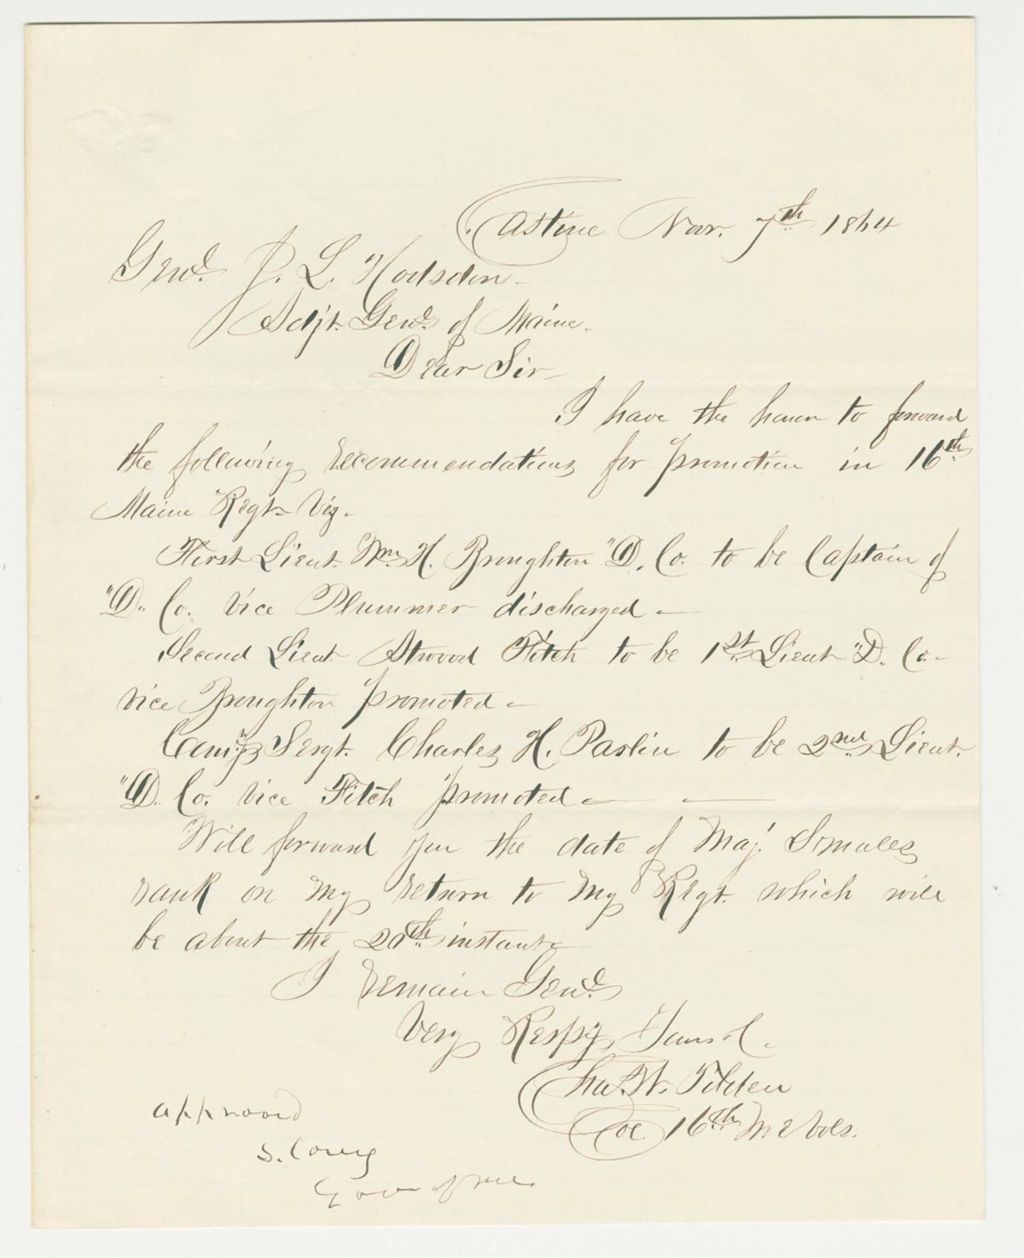 Castine Nov. 7th 1864
Genl. J. L. Hodsdon
Adjt. Genl. of Maine.
Dear Sir
I have the honor to forward
the following recommendations for promotion in 16th
Maine Regt. Viz.
First Lieut. Wm. H. Broughton "D. Co. to be Captain of
"D.. Co. vice Plummer discharged —
Second Lieut Atwood Fitch to be 1st Lieut "D. Co —
vice Broughton promoted —
Comy Sergt. Charles H. Parlin to be 2nd Lieut.
"D. Co. vice Fitch promoted —
Will forward you the date of Maj. Smalls
rank on my return to my Regt. which will
be about the 20th instant
I remain Genl.
Very Respy Yours &c.
Chas. W. Tilden
Col. 16th Me Vols.
approved
S. Cony
Gov of Me